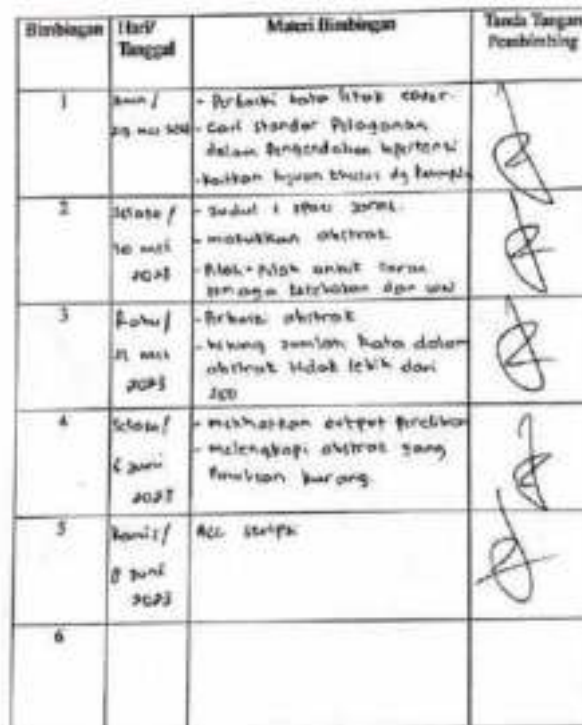 Bimbingan
Hari/
Tanggal
Materi Bimbingan
Tanda Tangan
Pembimbing
1
- Perbaiki kata letak cover.
- Cari standar Pelayanan
dalam Pengendalian hipertensi
- Kaitkan tujuan khusus dg
2
Selasa /
30 mei
2023
- Judul 1 spasi
- masukkan abstrak
- Pilah-Pilah untuk saran
tenaga kesehatan dan
3
Rabu /
31 mei
2023
- Perbaiki abstrak
- hitung Jumlah kata dalam
abstrak tidak lebih dari
250
4
Selasa /
6 Juni
2023
- output Penelitian
- melengkapi abstrak yang
Penulisan kurang.
5
Kamis /
8 Juni
2023
Acc skripsi
6